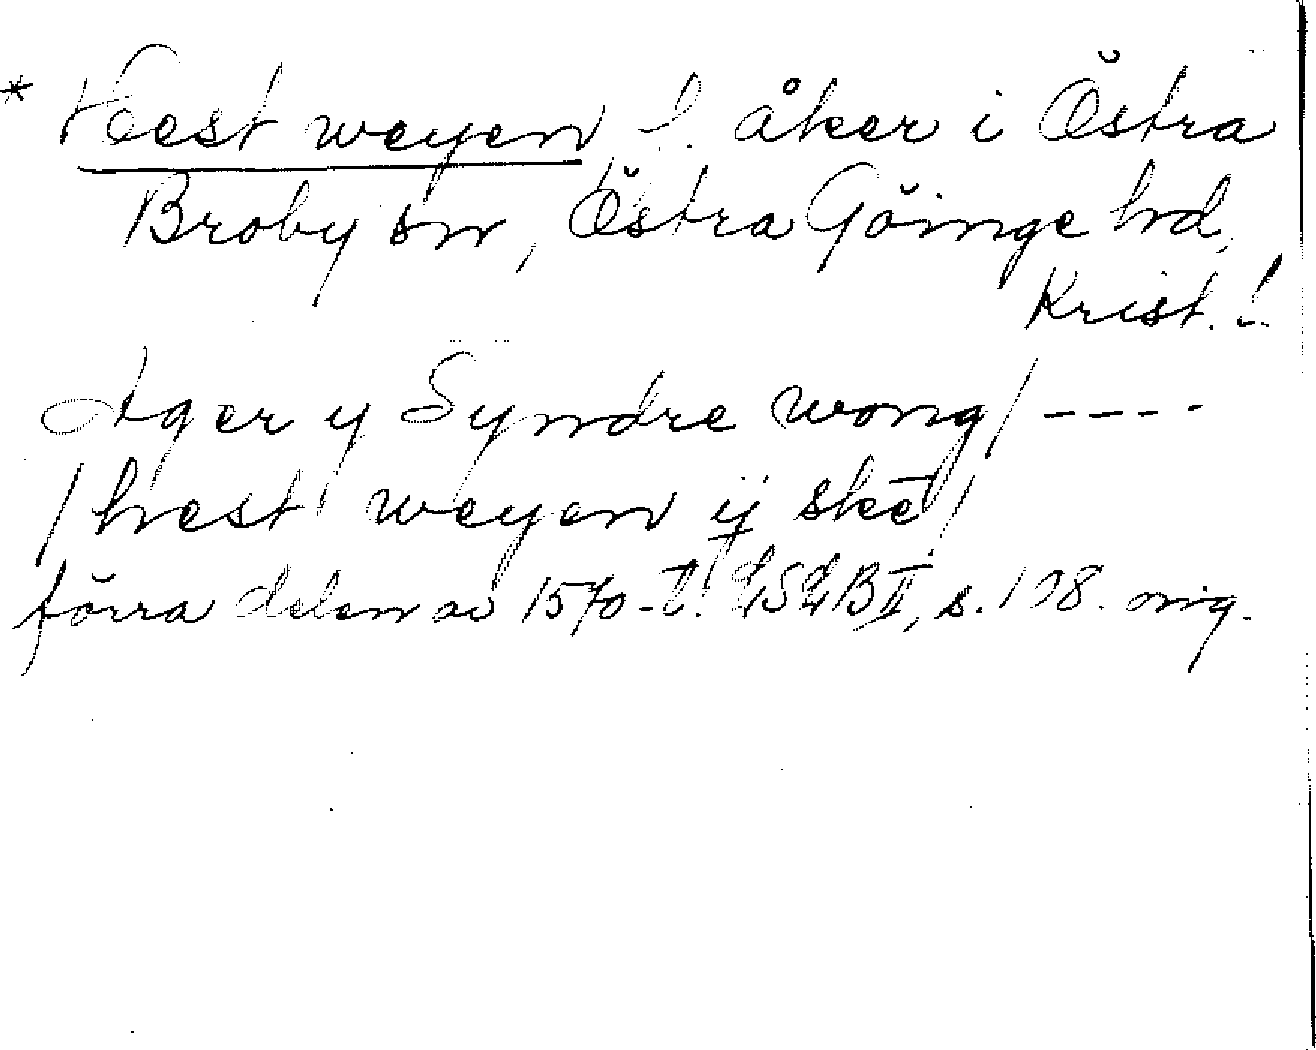 * Hest weyen f. åker i Östra
Broby sn, Östra Göinge hd,
Krist. l.
Ager y Syndre wong / ----
/ hest weyen ij skē /
förra delen av 1570-t. LSLB II, s. 108. orig.